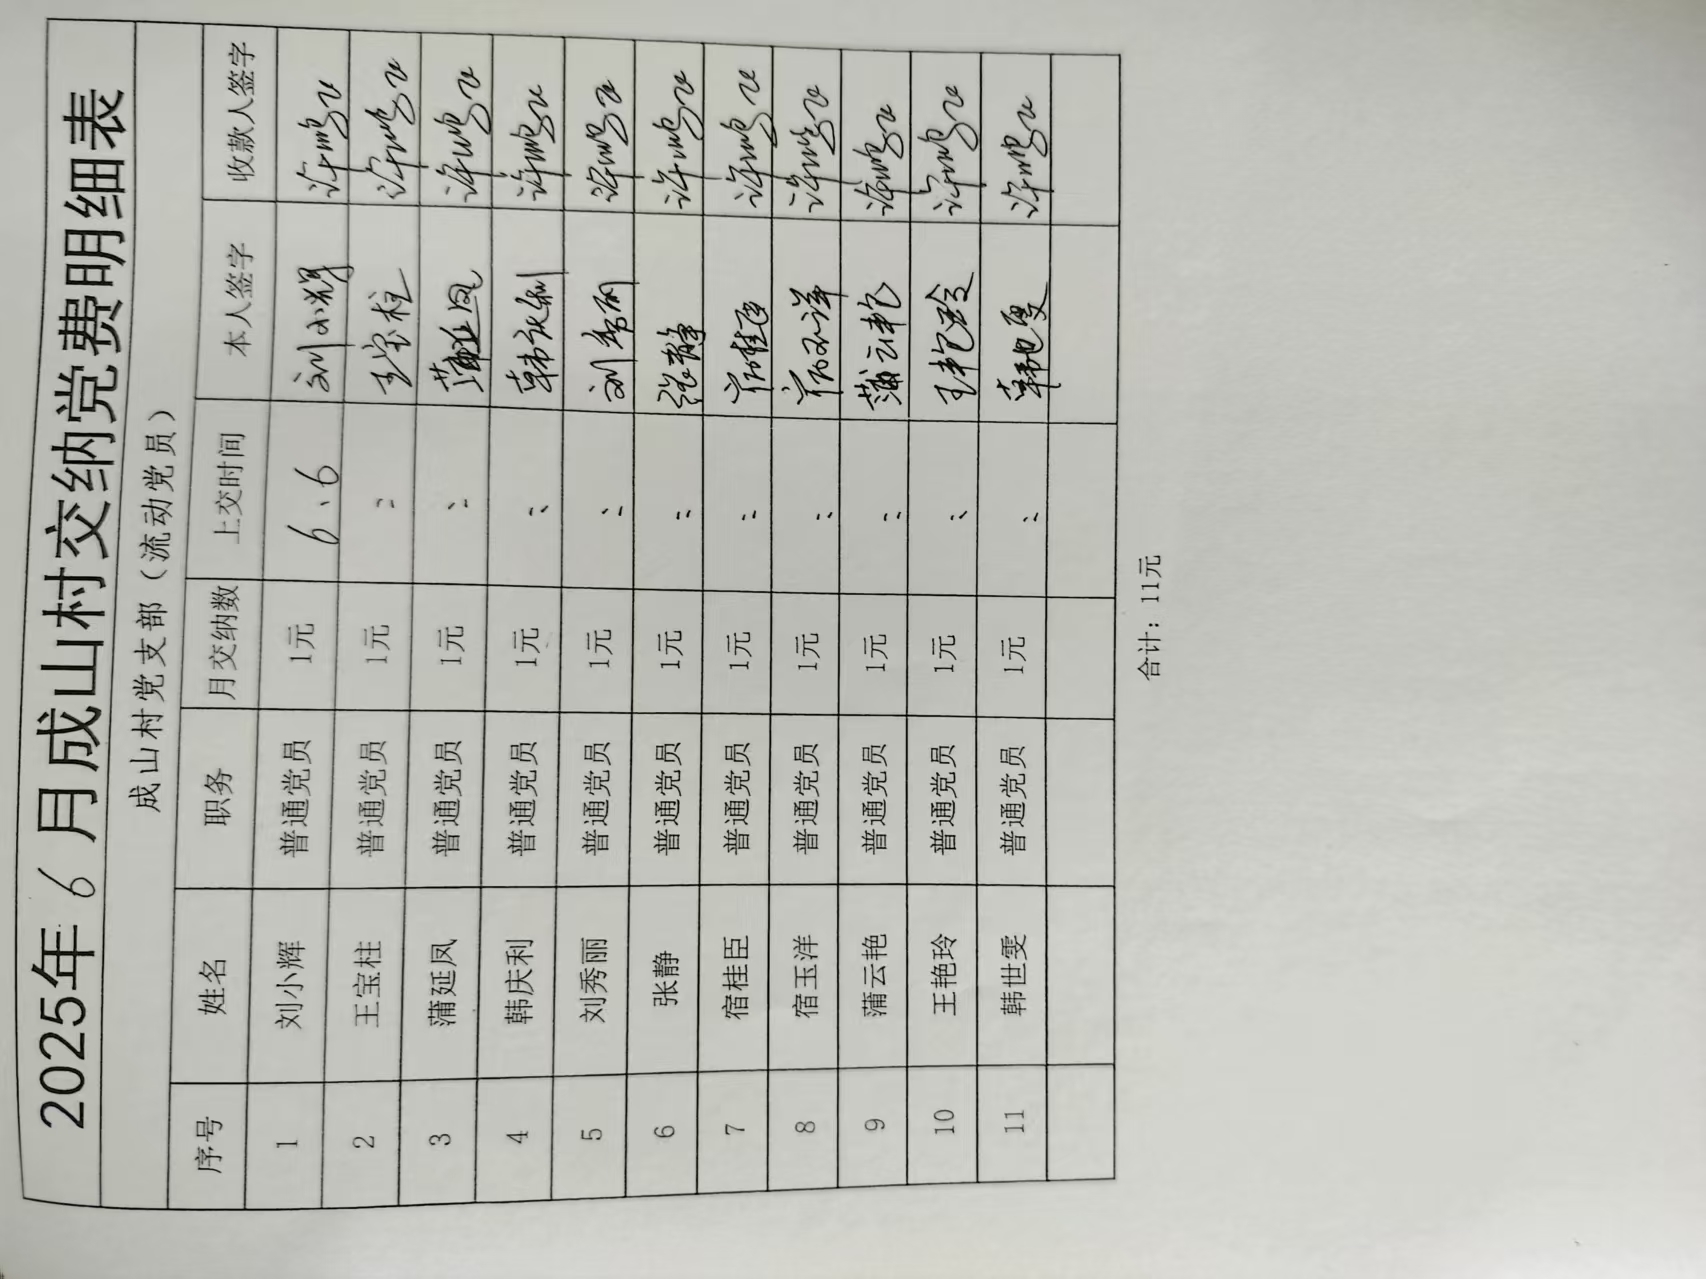 2025年6月成山村交纳党费明细表
成山村党支部（流动党员）
序号 姓名 职务 月交纳数 上交时间 本人签字 收款人签字
1 刘小辉 普通党员 1元 6、6 刘小辉
2 王宝柱 普通党员 1元 〃 王宝柱
3 蒲延凤 普通党员 1元 〃 蒲延凤
4 韩庆利 普通党员 1元 〃 韩庆利
5 刘秀丽 普通党员 1元 〃 刘秀丽
6 张静 普通党员 1元 〃 张静
7 宿桂臣 普通党员 1元 〃
8 宿玉洋 普通党员 1元 〃
9 蒲云艳 普通党员 1元 〃 蒲云艳
10 王艳玲 普通党员 1元 〃 王艳玲
11 韩世雯 普通党员 1元 〃
合计：11元